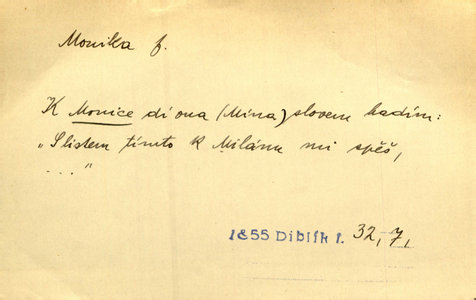 Monika f.
K Monice dí ona (Mína) slovem hadím:
„S listem tímto k Milánu mi spěš,
..."
1855 Diblík 1. 32, 7,